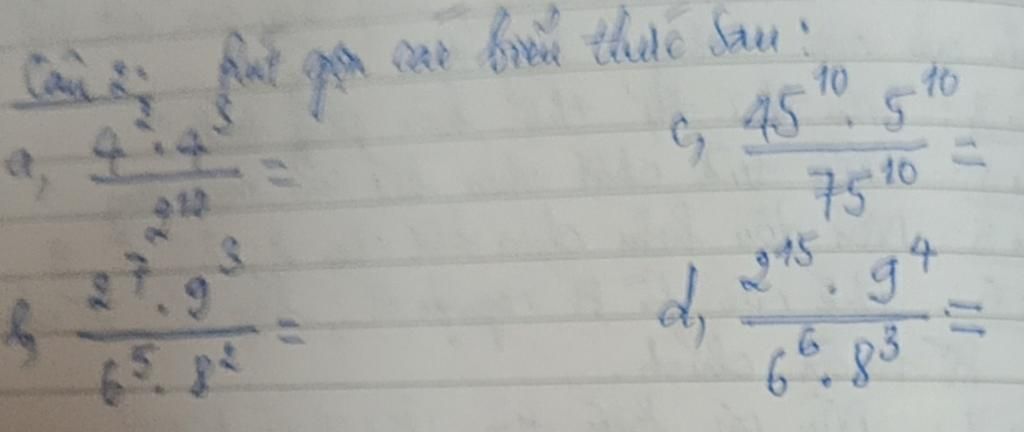 Câu 2: Rút gọn các biểu thức sau:
a, \frac{4^2 \cdot 4^3}{2^{12}} =
c, \frac{45^{10} \cdot 5^{10}}{75^{10}} =
b, \frac{2^7 \cdot 9^3}{6^5 \cdot 8^2} =
d, \frac{2^{15} \cdot 9^4}{6^6 \cdot 8^3} =